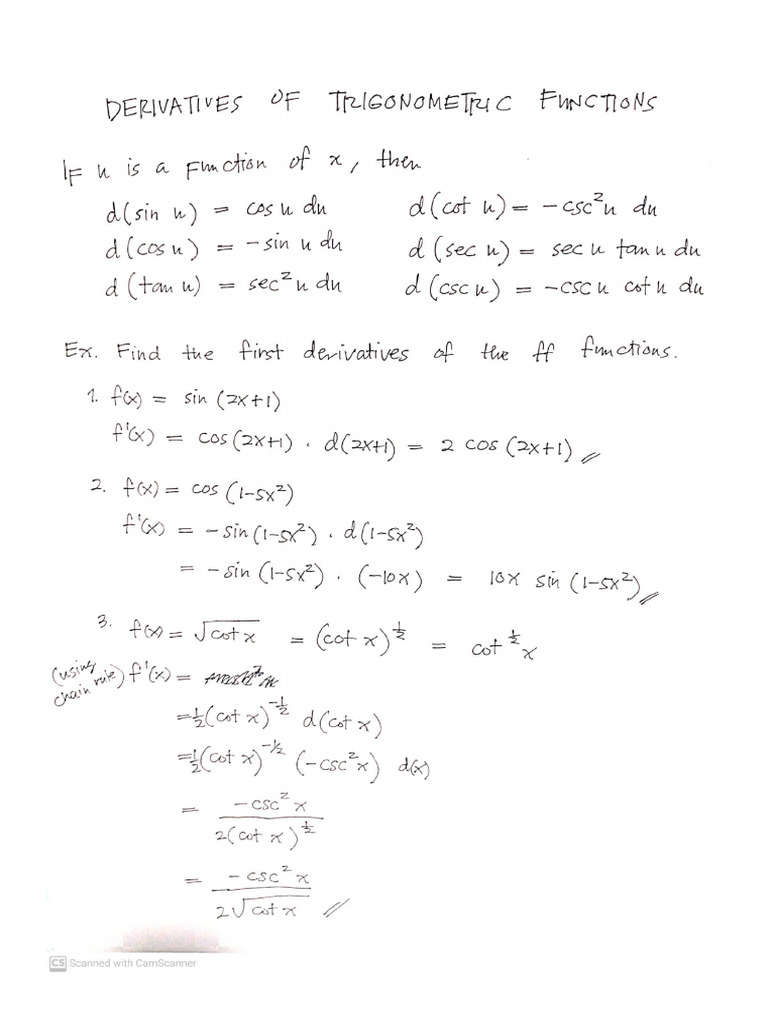 DERIVATIVES OF TRIGONOMETRIC FUNCTIONS
IF u is a function of x, then
d(sin u) = cos u du d(cot u) = -csc²u du
d(cos u) = -sin u du d(sec u) = sec u tan u du
d(tan u) = sec²u du d(csc u) = -csc u cot u du
Ex. Find the first derivatives of the ff functions.
1. f(x) = sin (2x+1)
f'(x) = cos(2x+1) · d(2x+1) = 2 cos (2x+1)
2. f(x) = cos (1-5x²)
f'(x) = -sin(1-5x²) · d(1-5x²)
= -sin (1-5x²) · (-10x) = 10x sin (1-5x²)
3. f(x) = √cot x = (cot x)^½ = cot^½ x
(using chain rule) f'(x) =
=½(cot x)^-½ d(cot x)
=½(cot x)^-½ (-csc²x) d(x)
= -csc²x / 2(cot x)^½
= -csc²x / 2√cot x
CS Scanned with CamScanner